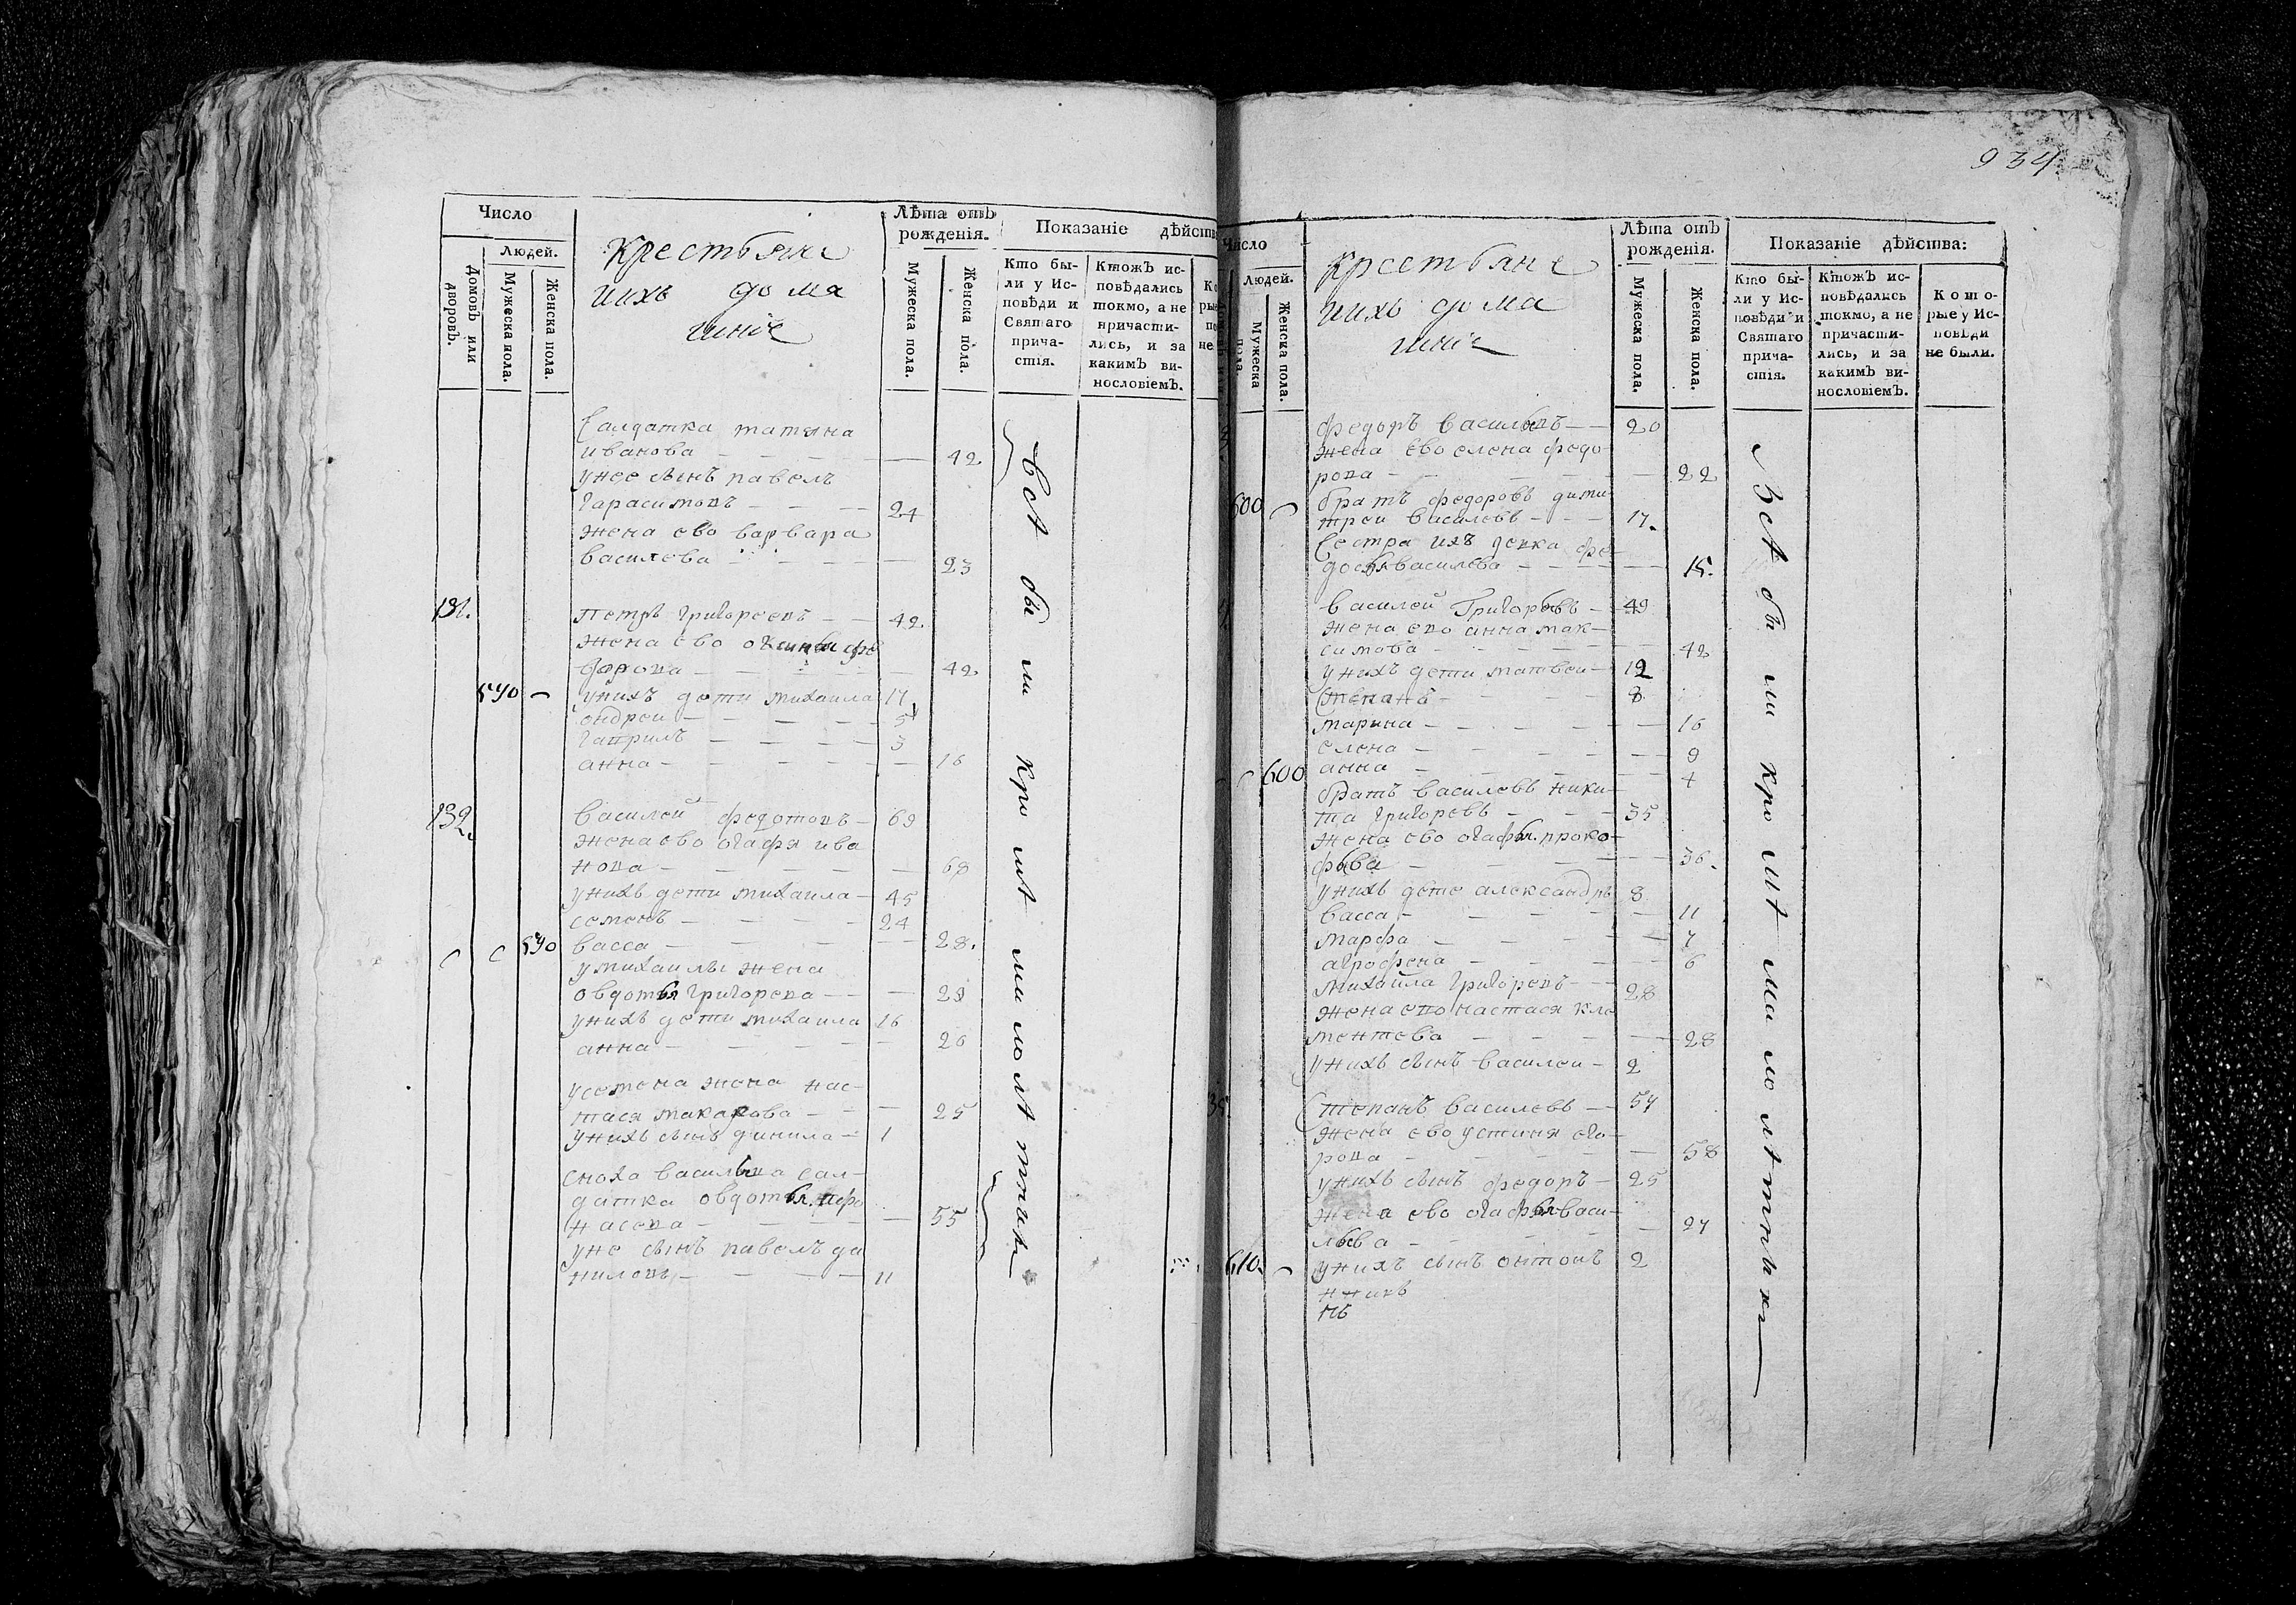 Число
Людей.
Домовъ или дворовъ.
Мужеска пола.
Женска пола.
Крестьяне
иихъ дома
шніе
Лѣта отъ
рожденія.
Мужеска пола.
Женска пола.
Показаніе дѣйства
Кто бы-
ли у Ис-
повѣди и
Святаго
прича-
стія.
Ктожъ ис-
повѣдались
токмо, а не
причасти-
лись, и за
какимъ ви-
нословіемъ.
Салдатка татяна
иванова 42
унее сынъ павелъ
гарасимовъ 24
жена ево варвара
василева 23
131. петръ григореевъ 42
жена ево
42
590 унихъ дети михаила 17
ондреи 5
гаврилъ 3
анна 16
132. василей федотовъ 69
жена ево огафя ива
нова 68
унихъ дети михаила 45
семенъ 24
590 васса 28.
умихаилы жена
овдотья григорева 29
унихъ дети михаила 16
анна 20
усемена жена нас-
тася макарова 25
унихъ сынъ данила 1
сноха васильева сал-
датка овдотья
55
уне сынъ павелъ да
ниловъ 11
всѣ бы ли кро мѣ ма ло лѣ тныхъ
934
Число
Людей.
Мужеска пола.
Женска пола.
Крестьяне
иихъ дома
шніе
Лѣта отъ
рожденія.
Мужеска пола.
Женска пола.
Показаніе дѣйства:
Кто бы-
ли у Ис-
повѣди и
Святаго
прича-
стія.
Ктожъ ис-
повѣдались
токмо, а не
причасти-
лись, и за
какимъ ви-
нословіемъ.
Кото-
рые у Ис-
повѣди
не были.
федоръ васильевъ 20
жена ево елена федо-
рова 22
600 братъ федоровъ дими-
треи василевъ 17.
Сестра ихъ девка фе-
досья василева 15.
василей Григорьевъ 49
жена ево анна мак-
симова 42
унихъ дети матвеи 12
Степанъ 8
марина 16
елена 9
600 анна 4
братъ василевъ ники-
та григоревъ 35
жена ево огафья проко-
фьева 36.
унихъ дете александръ 8
васса 11
марфа 7
агрофена 6
михаила григоревъ 28
жена ево настася кле
ментева 28
унихъ сынъ василеи 2
Степанъ василевъ 57
жена ево устиня его-
рова 58
унихъ сынъ федоръ 25
жена ево огафья васи-
льева 27
610. унихъ сынъ антонъ 2
Всѣ бы ли кро мѣ ма ло лѣ тныхъ